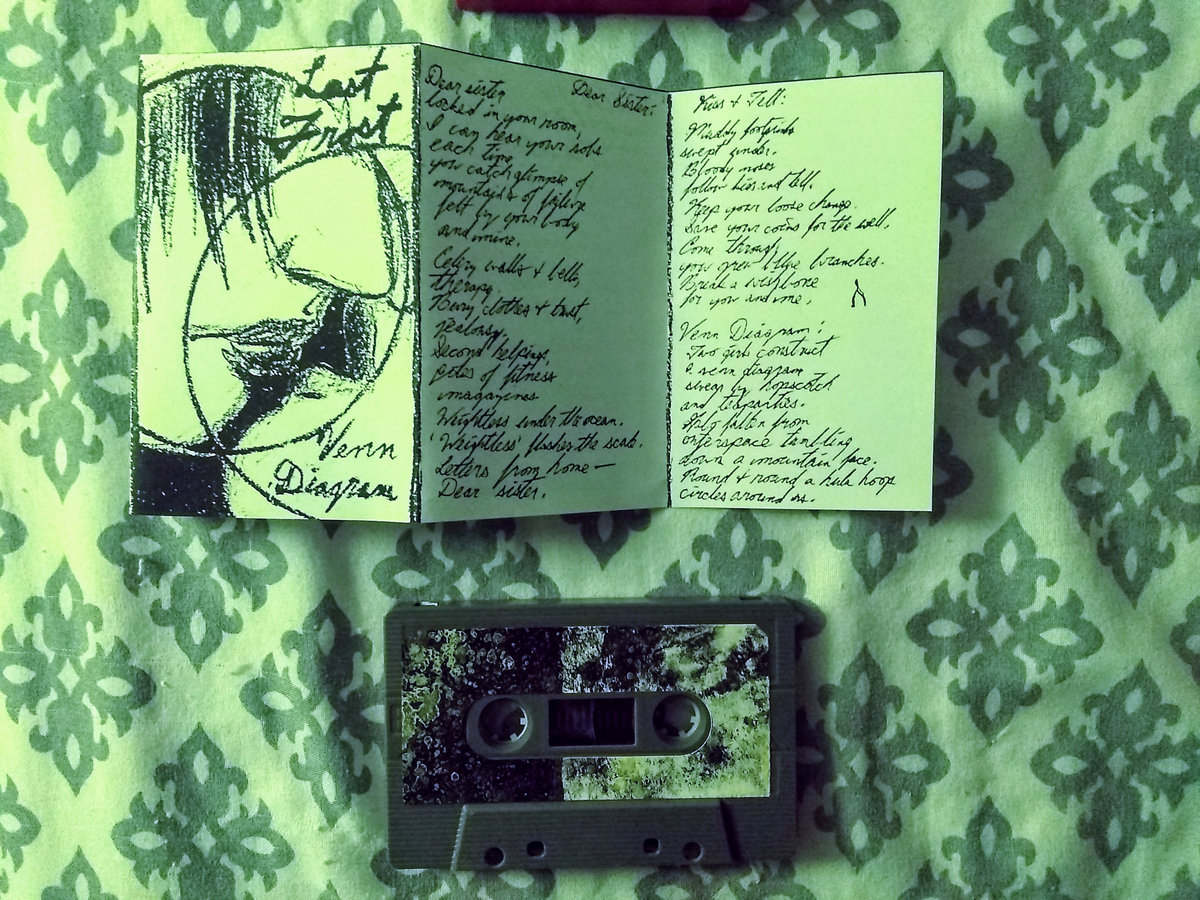 Last
Frost
Venn
Diagram
Dear Sister:
Dear sister
locked in your room,
I can hear your sobs
each time
you catch glimpse of
mountains of failure
felt by your body
and mine.
walls + bells,
therapy.
Bury clothes + trust,
jealousy.
Second helping,
piles of fitness
magazines
Weightless under the ocean.
'Weightless' flashes the scale.
Letters from home—
Dear sister.
Kiss + Tell:
Muddy footprints
swept under.
Bloody noses
follow kiss and tell.
Keep your loose change.
Save your coins for the well.
Come through
you grew like branches.
Break a wishbone
for you and me.
Venn Diagram:
Two girls construct
a venn diagram
strung by hopscotch
and teaparties.
Halo fallen from
outerspace tumbling
down a mountain face.
Round + round a hula hoop
circles around us.